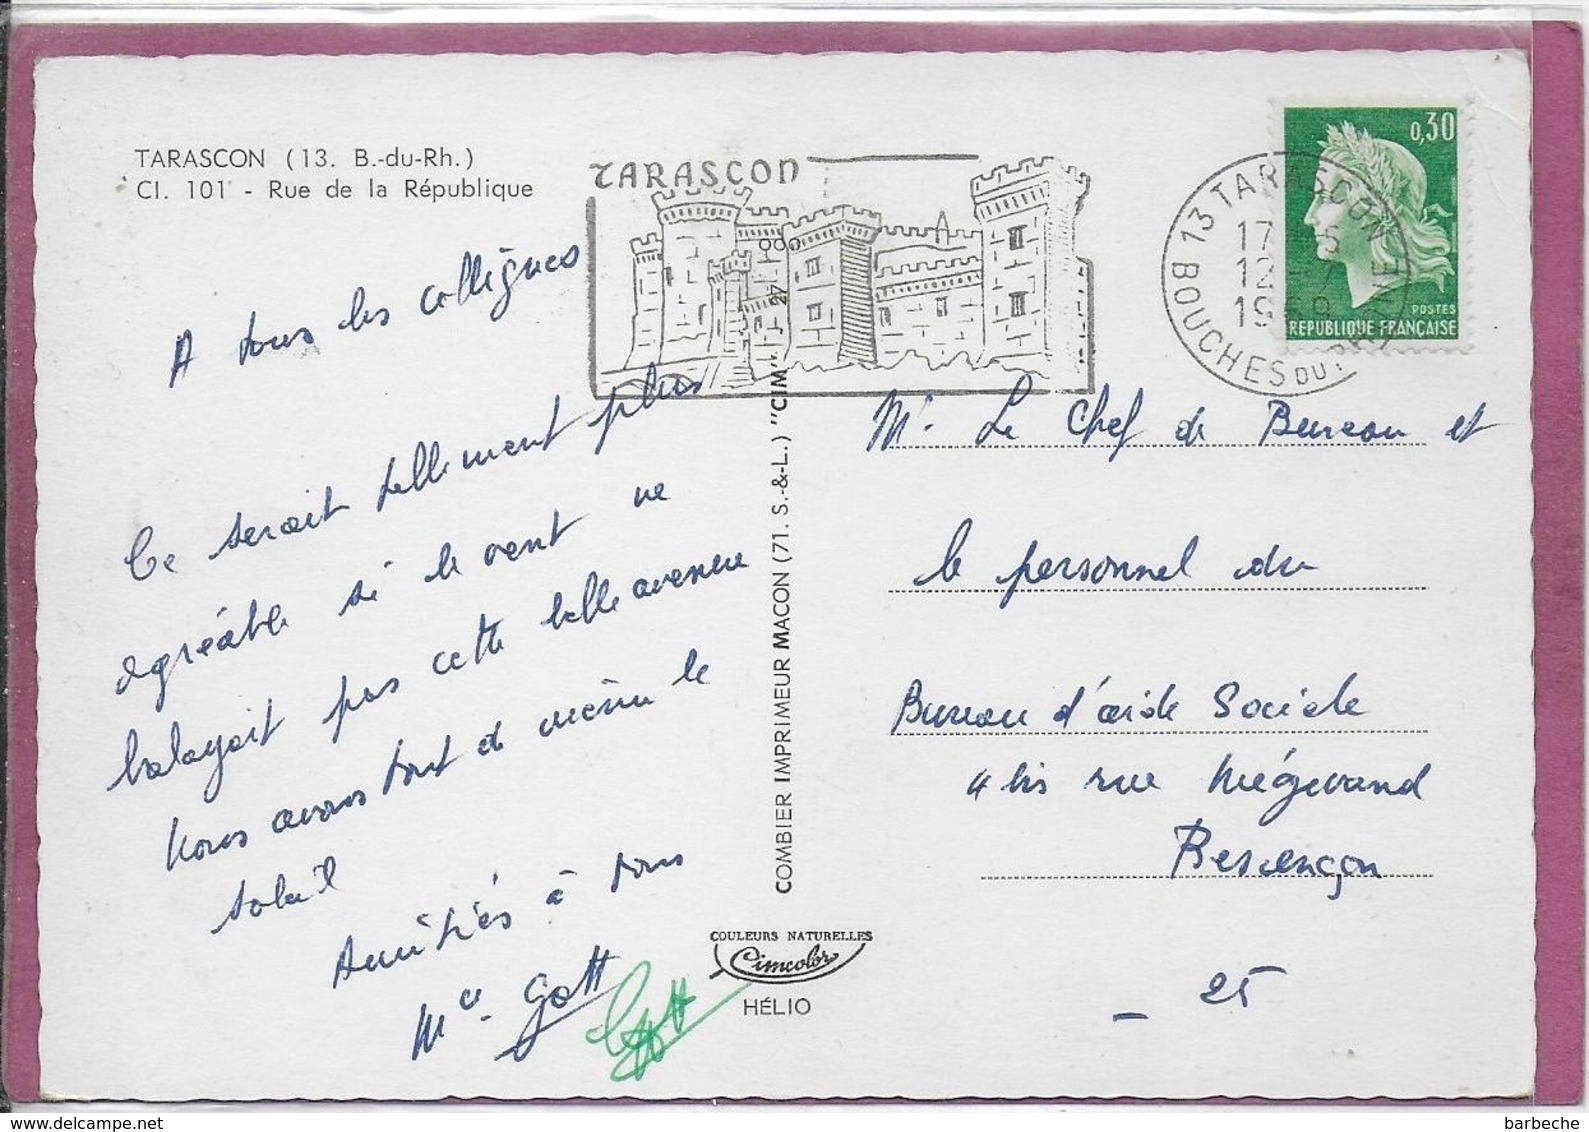 TARASCON (13. B.-du-Rh.)
Cl. 101 - Rue de la République
TARASCON
13 TARASCON
BOUCHES DU RHONE
17
12 - 7
0,30
POSTES
REPUBLIQUE FRANÇAISE
A tous les collègues
Ce serait tellement plus
agréable si le vent ne
balayait pas cette belle avenue
Nous avons tout de même le
soleil
Amitiés à tous
Gott
COMBIER IMPRIMEUR MACON (71. S.-&-L.) "CIM"
COULEURS NATURELLES
Cimcolor
HÉLIO
Mr. Le Chef de Bureau et
le personnel du
Bureau d'aide Sociale
4 bis rue Mégevand
Besançon
_ 25
barbeche